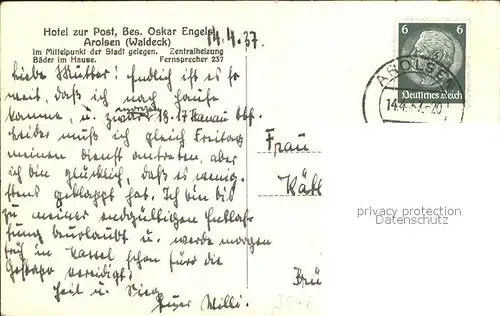 Hotel zur Post, Bes. Oskar Engels
Arolsen (Waldeck)
Im Mittelpunkt der Stadt gelegen. Zentralheizung
Bäder im Hause. Fernsprecher 237
14.4.37.
Liebe Mutter! Endlich ist es so
weit, daß ich nach Hause
komme, u. zwar 18.17 Hanau Hbf.
Leider muß ich gleich Freitag
meinen Dienst antreten, aber
ich bin glücklich, daß es wenig-
stens geklappt hat. Ich bin bis
zu meiner endgültigen Entlas-
sung beurlaubt u. werde morgen
früh in Kassel schon für die
Gestapo vereidigt.
Heil u. Sieg
Euer Willi.
6 6
Deutsches Reich
AROLSEN
Frau
Kät
Brü
privacy protection
Datenschutz